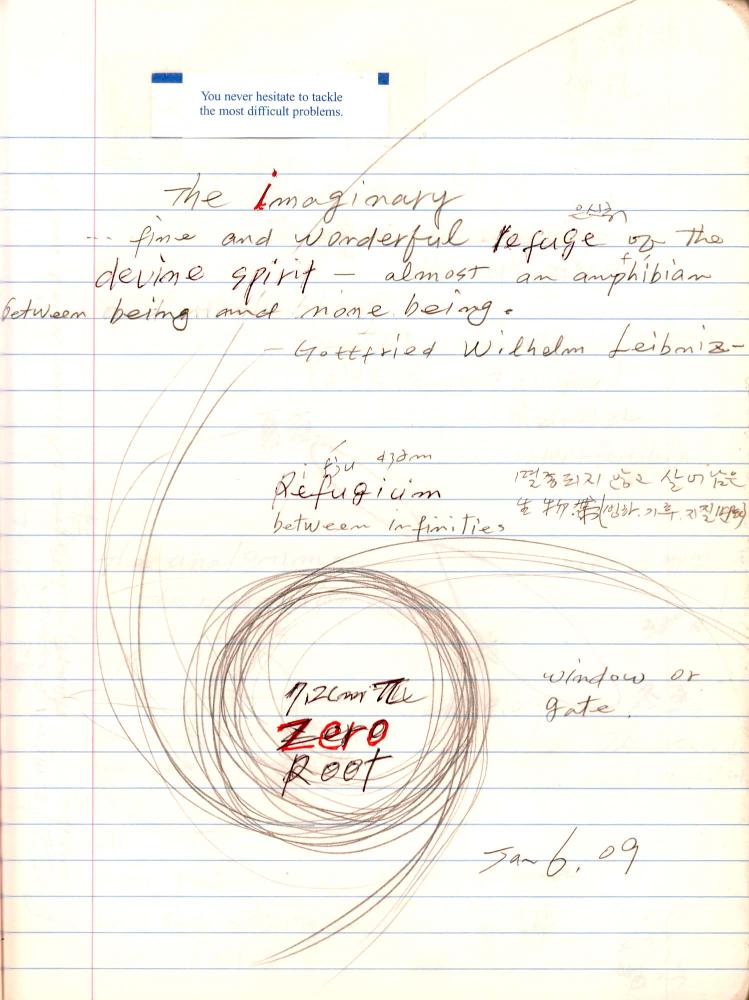 You never hesitate to tackle
the most difficult problems.
The imaginary
은신국
... fine and wonderful refuge of the
devine spirit – almost an amphibian
between being and none being.
– Gottfried Wilhelm Leibniz –
Refugicim
between infinities
멸종되지 않고 살어남은
生物
기후. 지질
window or
gate.
The
Zero
Root
Jan 6. 09